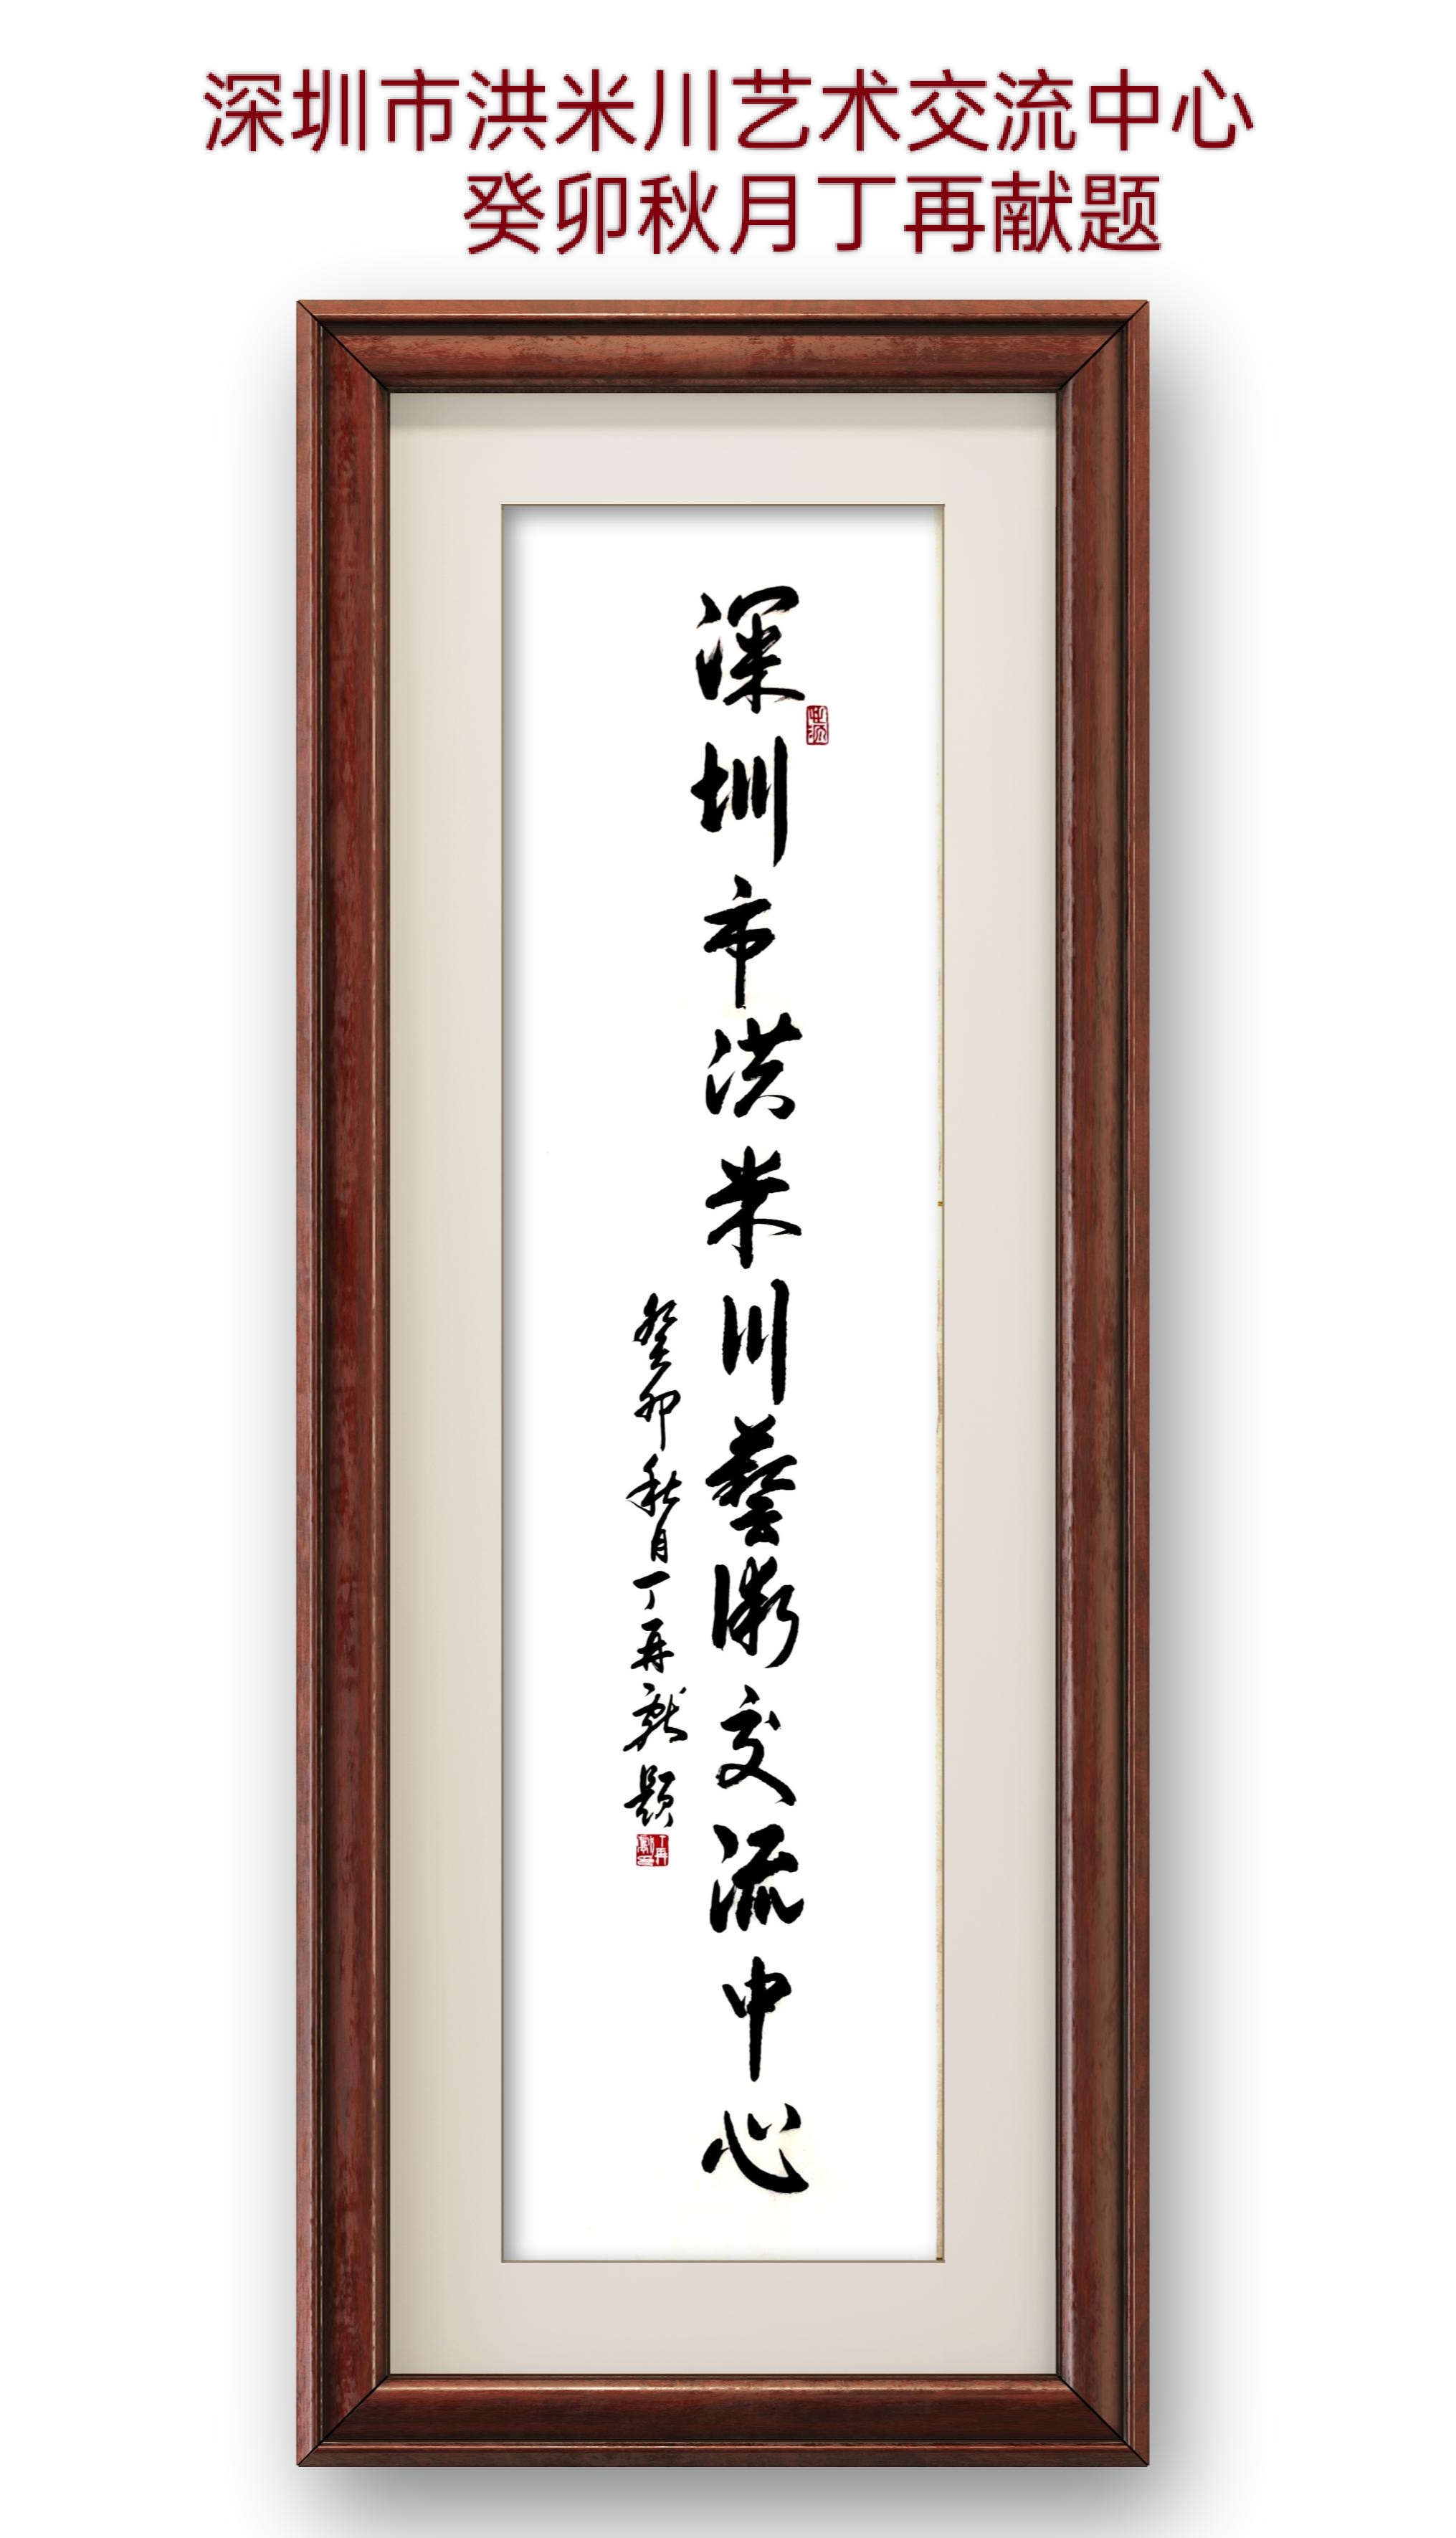 深圳市洪米川艺术交流中心
癸卯秋月丁再献题
深圳市洪米川藝術交流中心
癸卯秋月丁再献題